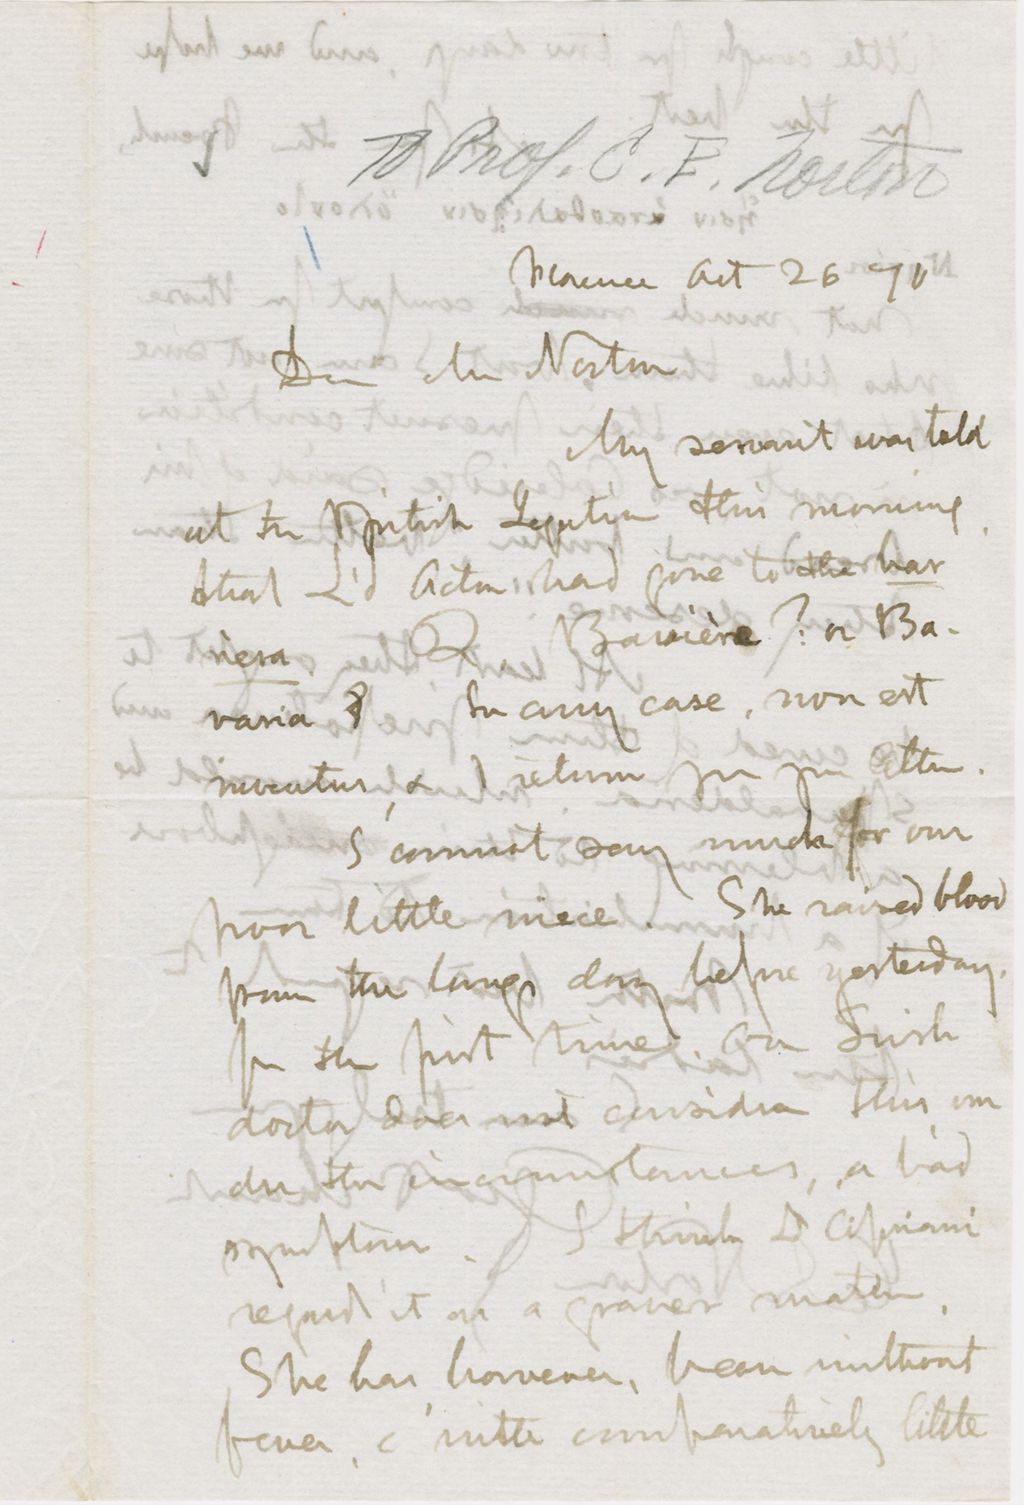 To Prof. C. E. Norton
Florence Oct 26 70
Dear Mr Norton
My servant was told
at the British Legation this morning,
that L'd Acton had gone to the bar
riera Q Barrière? or Ba-
varia? In any case, non est
inventus, & I return you your letter.
I cannot say much for our
poor little niece. She raised blood
from the lungs day before yesterday,
for the first time. Our Irish
doctor does not consider this un
der the circumstances, a bad
symptom. I think Dr Cipriani
regards it as a graver matter.
She has however, been without
fever, & with comparatively little